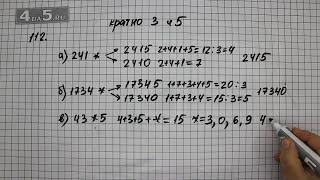 4DA5.RU
кратно 3 и 5
112.
а) 241 * 2415 2+4+1+5=12:3=4 2415
2410 2+4+1=7
б) 1734 * 17345 1+7+3+4+5=20:3 17340
17340 1+7+3+4=15:3=5
в) 43*5 4+3+5+*=15 *=3,0,6,9 4